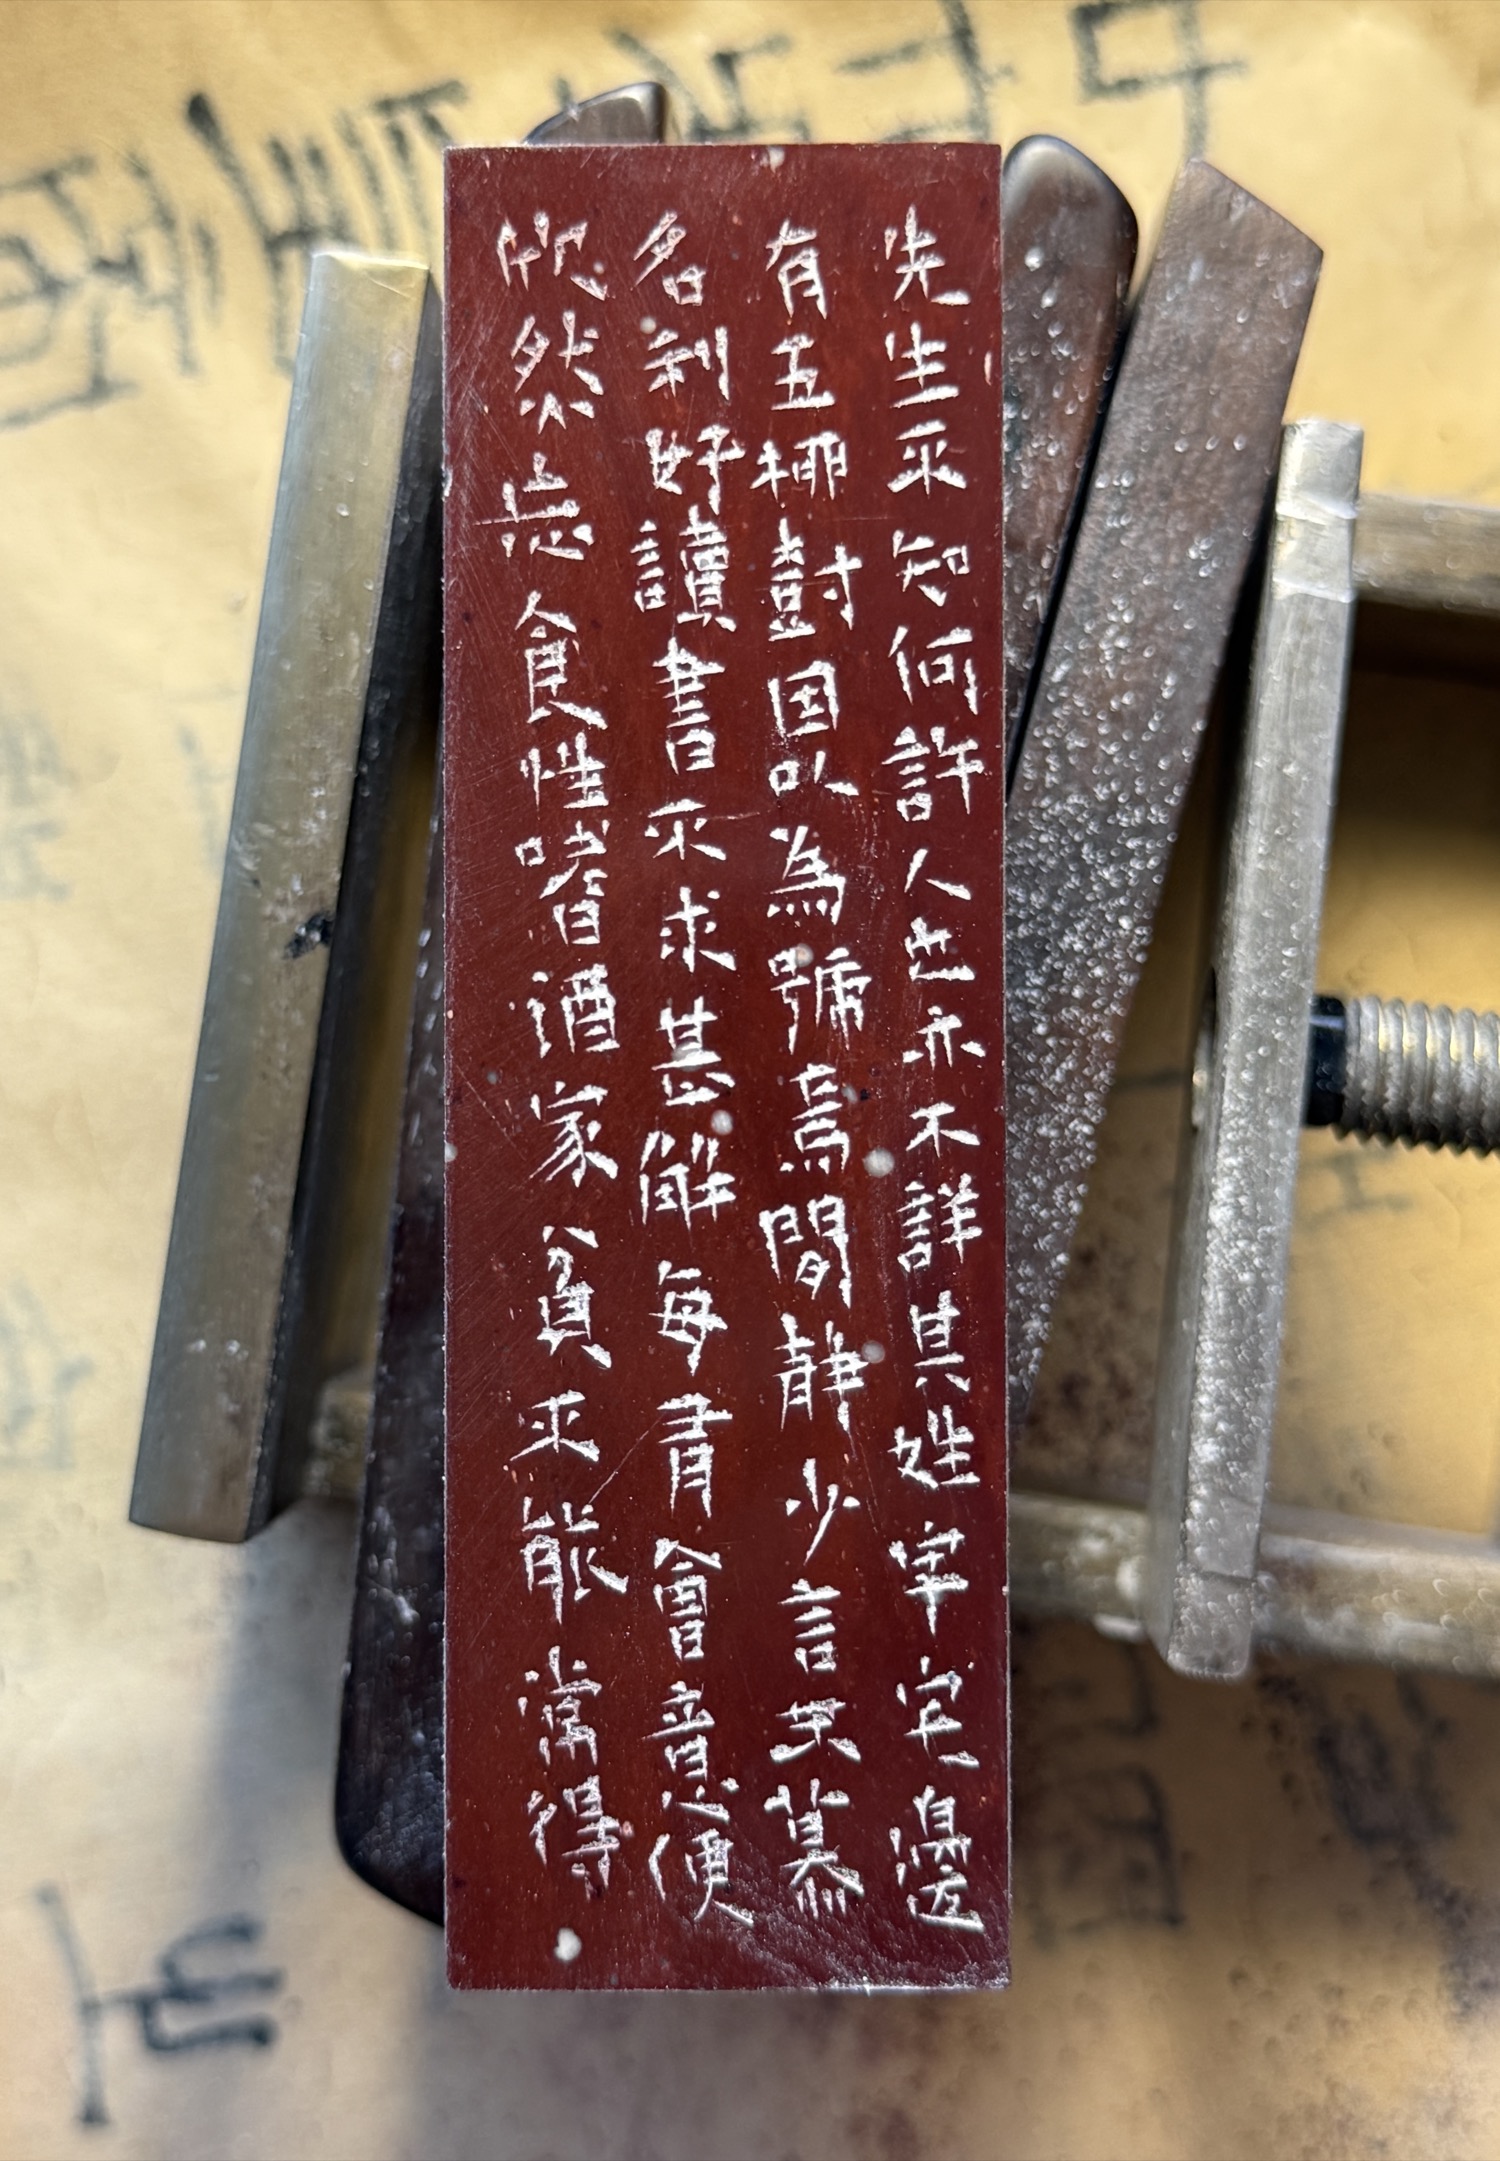 先生不知何許人也亦不詳其姓字宅邊
有五柳樹因以為號焉閒靜少言不慕
名利好讀書不求甚解每有會意便
欣然忘食性嗜酒家貧不能常得